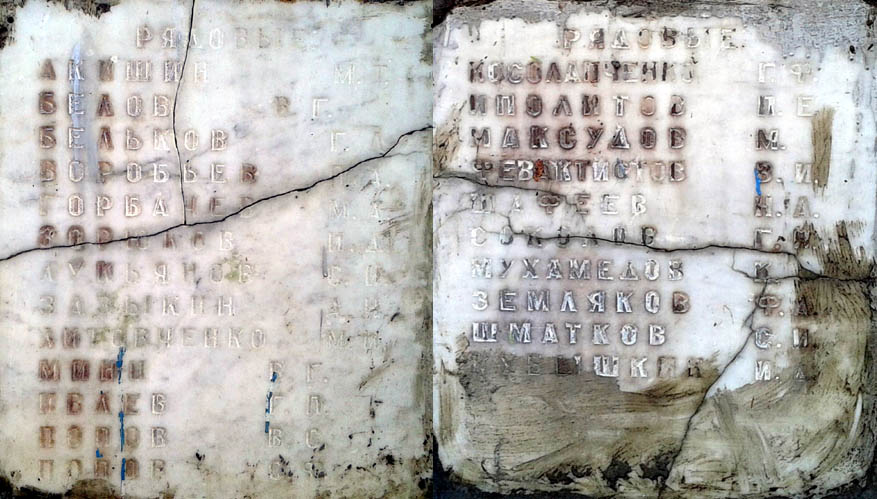 РЯДОВЫЕ
АКИШИН М.
БЕЛОВ В.Г.
БЕЛЬКОВ Г.А
ВОРОБЬЕВ
ГОРБАЧЕВ М.
И.
ЛУКЬЯНОВ С.
ЗАДЫКИН
ЛИТОВЧЕНКО М.И
МИНИ Г.
ИВАЕВ Г.П.
ПОПОВ В.С
ПОПОВ
РЯДОВЫЕ.
КОСОЛАПЧЕНКО Г.Ф.
ИПОЛИТОВ П.Е
МАКСУДОВ М.
ФЕВАКТИСТОВ В.И
ШАФЕЕВ Н.А.
СОКОЛОВ Г.
МУХАМЕДОВ К.
ЗЕМЛЯКОВ Ф.А
ШМАТКОВ С.И
И.